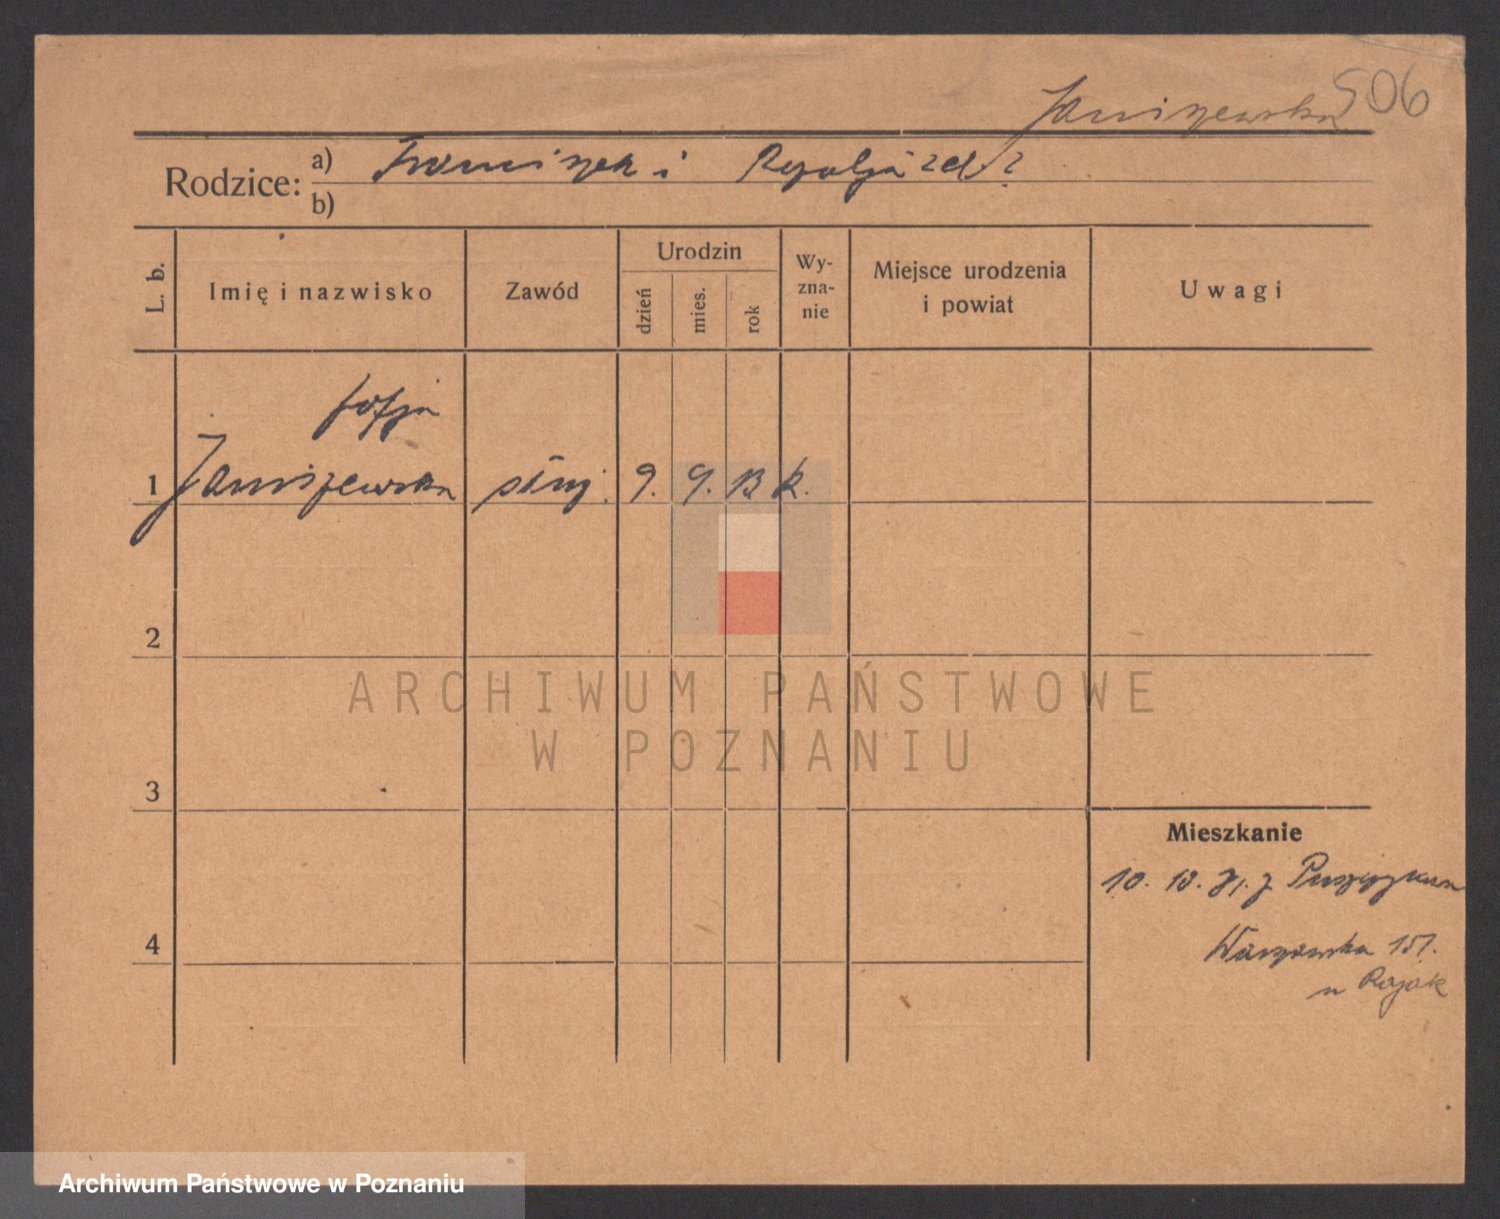 506
Janiszewska
Rodzice: a) Franciszek i Rozalja zd. ?
b)
L. b. Imię i nazwisko Zawód Urodzin dzień mies. rok Wy-zna-nie Miejsce urodzenia i powiat Uwagi
Zofja
1 Janiszewska służ. 9. 9. 13 k.
2
3
4
Mieszkanie
10. 10. 31. z
Warszawska 151.
u Rajak
ARCHIWUM PAŃSTWOWE
W POZNANIU
Archiwum Państwowe w Poznaniu